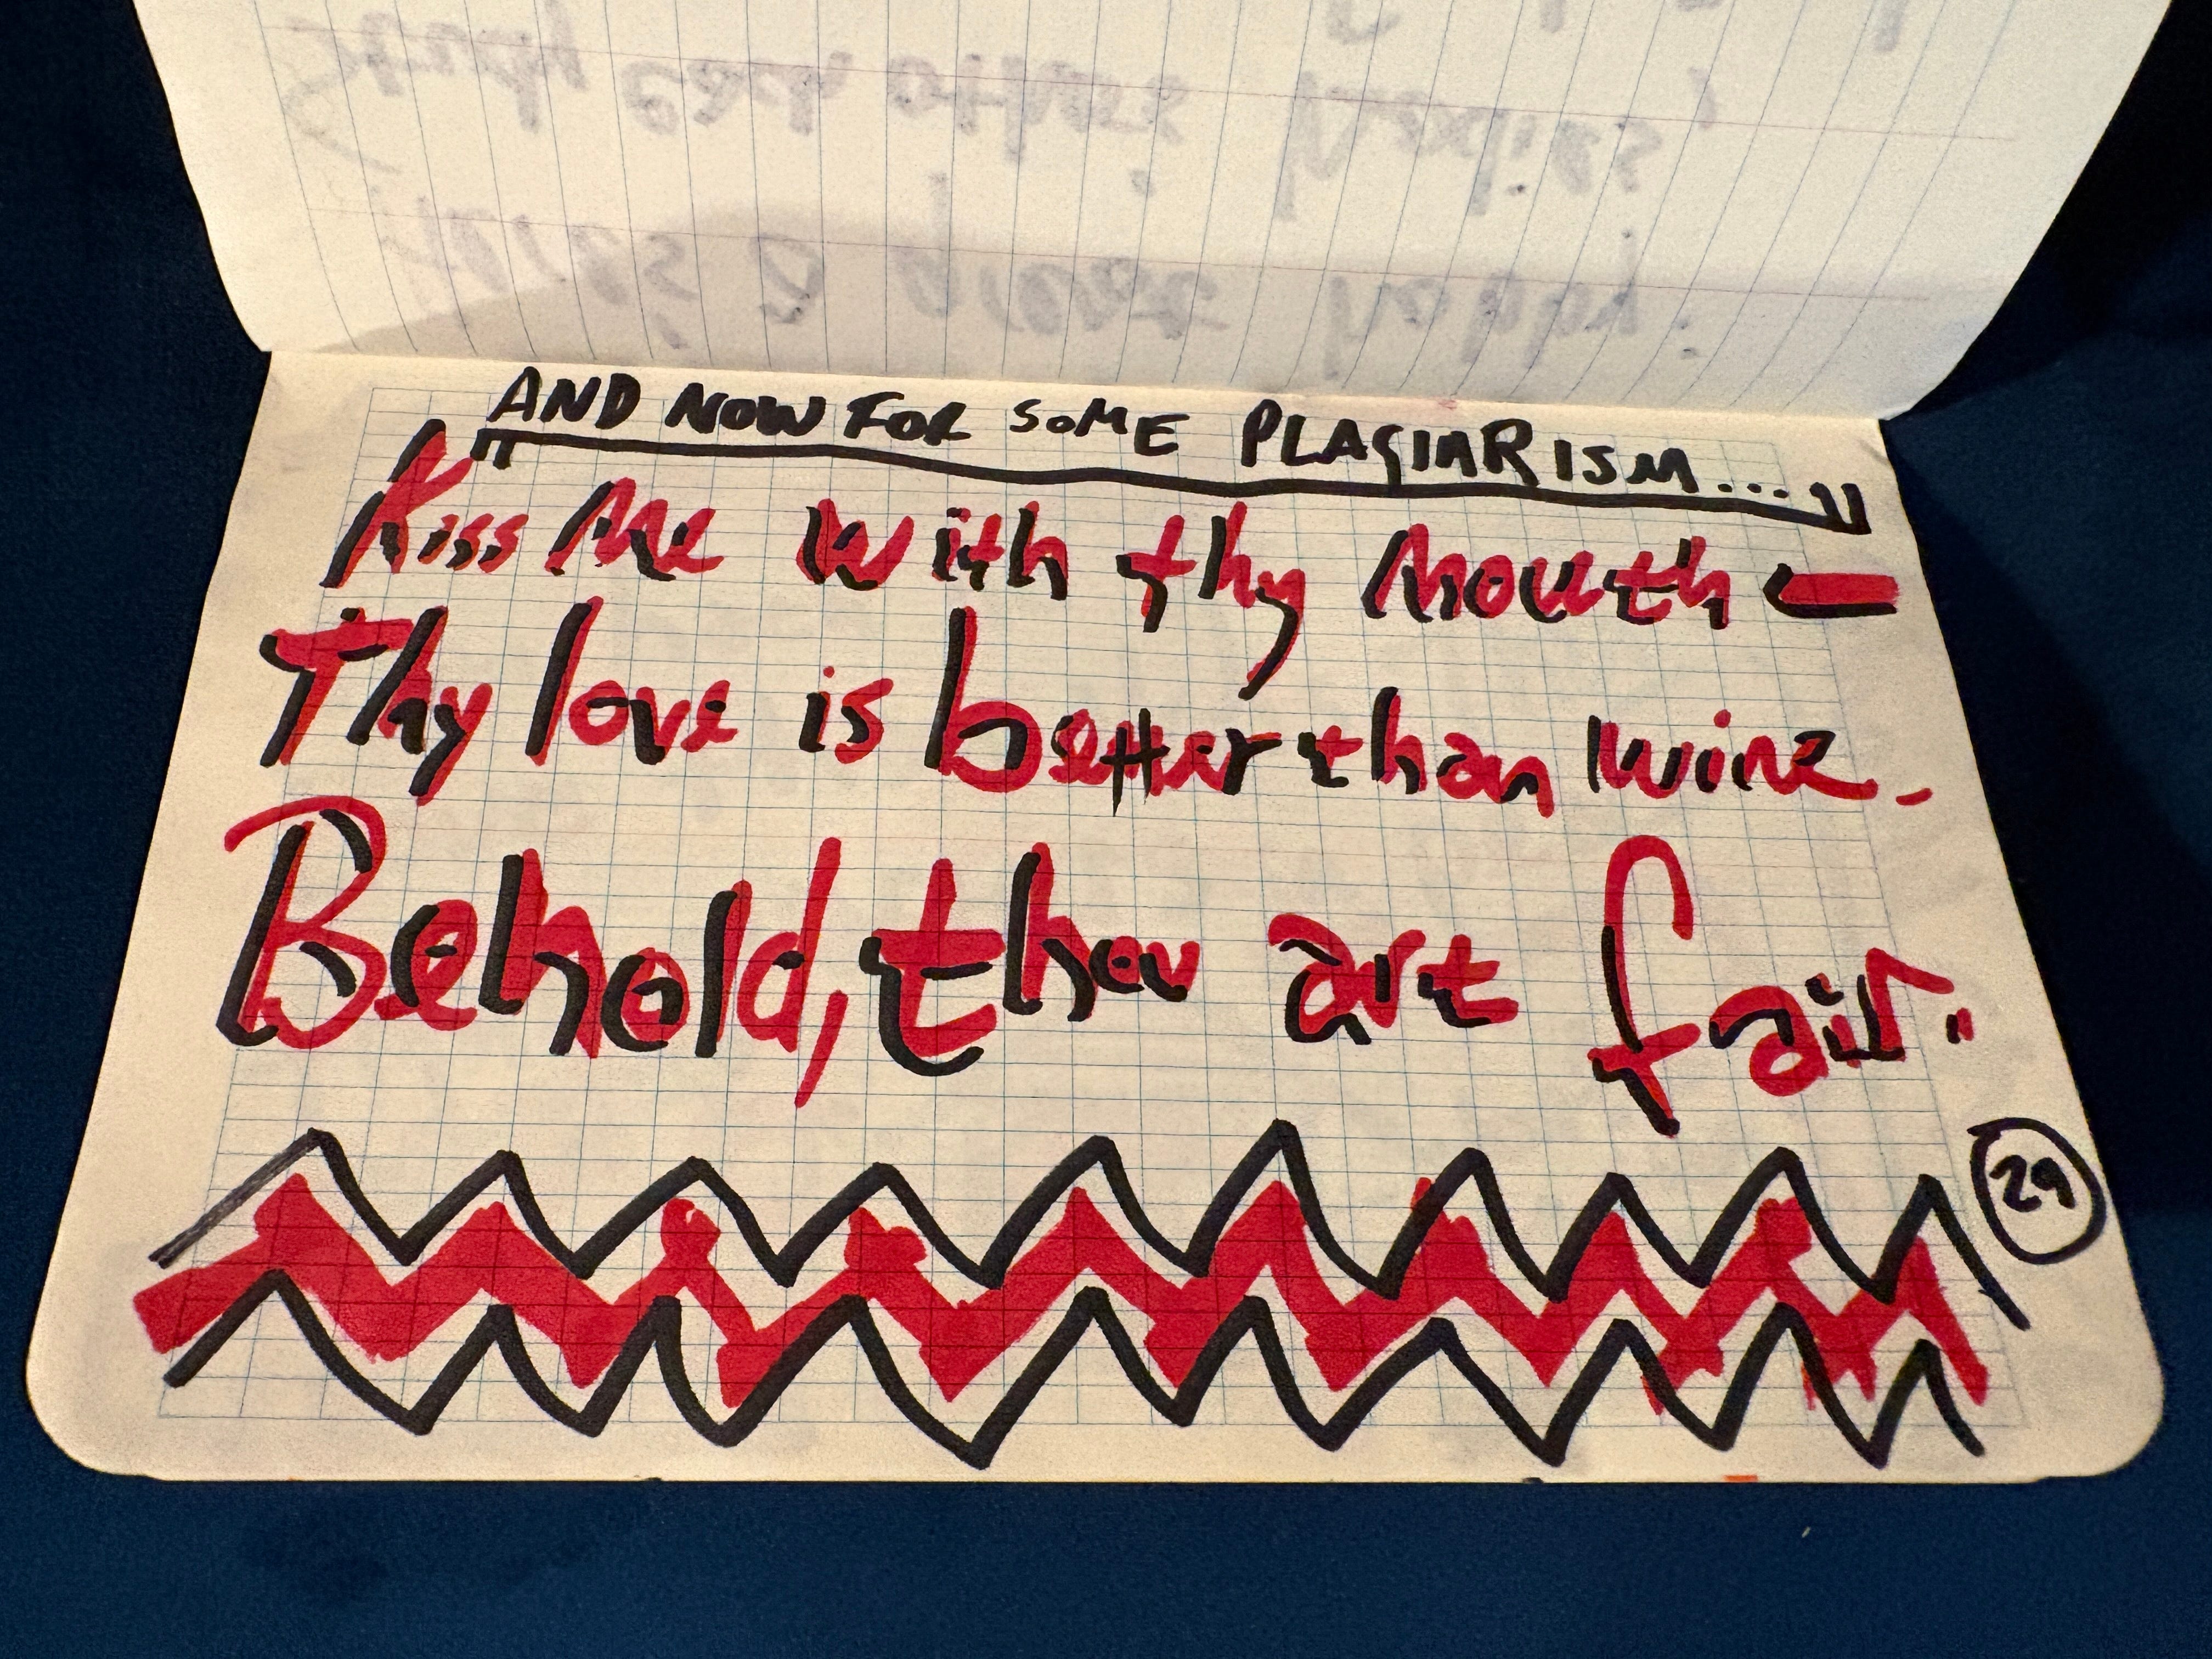 AND NOW FOR SOME PLAGIARISM...
Kiss Me with thy Mouth -
Thy love is better than wine.
Behold, thou art fair.
29